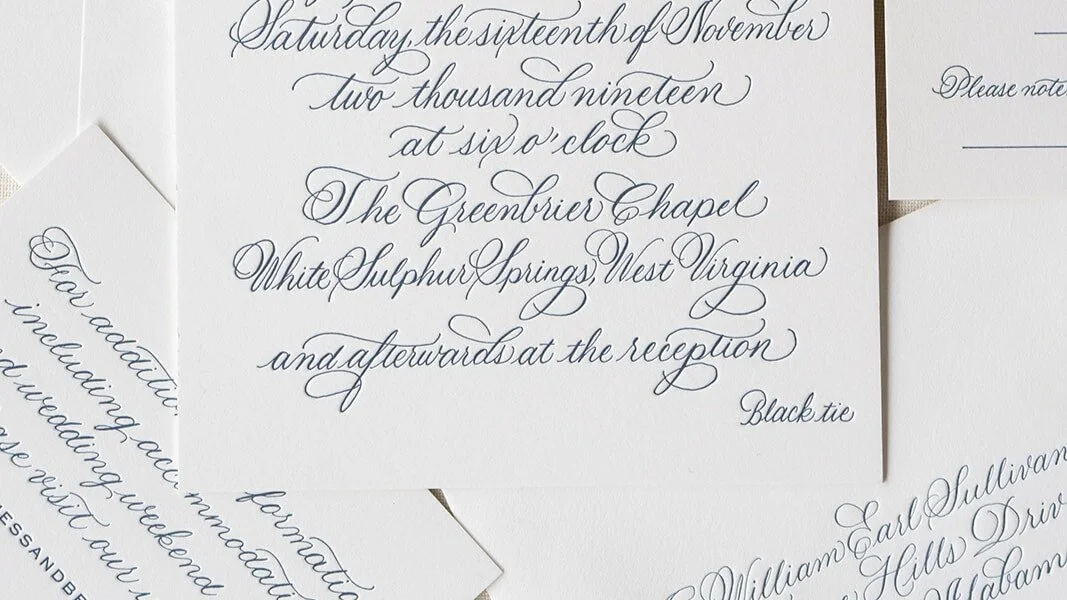 Saturday, the sixteenth of November
two thousand nineteen
at six o'clock
The Greenbrier Chapel
White Sulphur Springs, West Virginia
and afterwards at the reception
Black tie
Please note
For additio
formatio
including acc
mmodati
d wedding weekend
se visit our
ESSANDBE
William Earl Sullivan
Hills Driv
Alabam